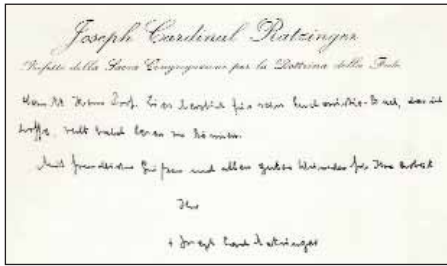 Joseph Cardinal Ratzinger
Prefetto della Sacra Congregazione per la Dottrina della Fede
Herrn Prof. herzlich für sein Eucharistie-Buch, das ich
hoffe, recht bald lesen zu können.
Mit freundlichen Grüßen und allen guten Wünschen für Ihre Arbeit
Ihr
+ Joseph Card. Ratzinger